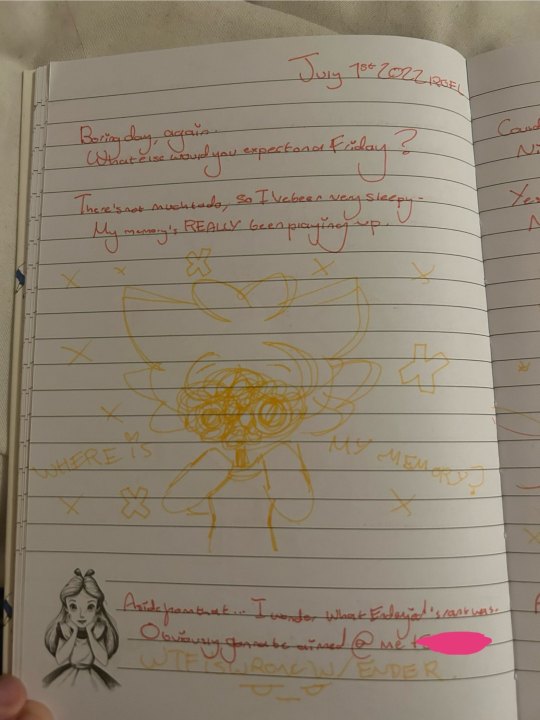 July 1st 2022
Boring day, again.
What else would you expect on a Friday?
There's not much to do, so I've been very sleepy.
My memory's REALLY been playing up.
WHERE IS MY MEMORY?
Aside from that... I wonder what rant was.
Obviously gonna be aimed @ me
WTF IS WRONG W/ ENDER.
Yes